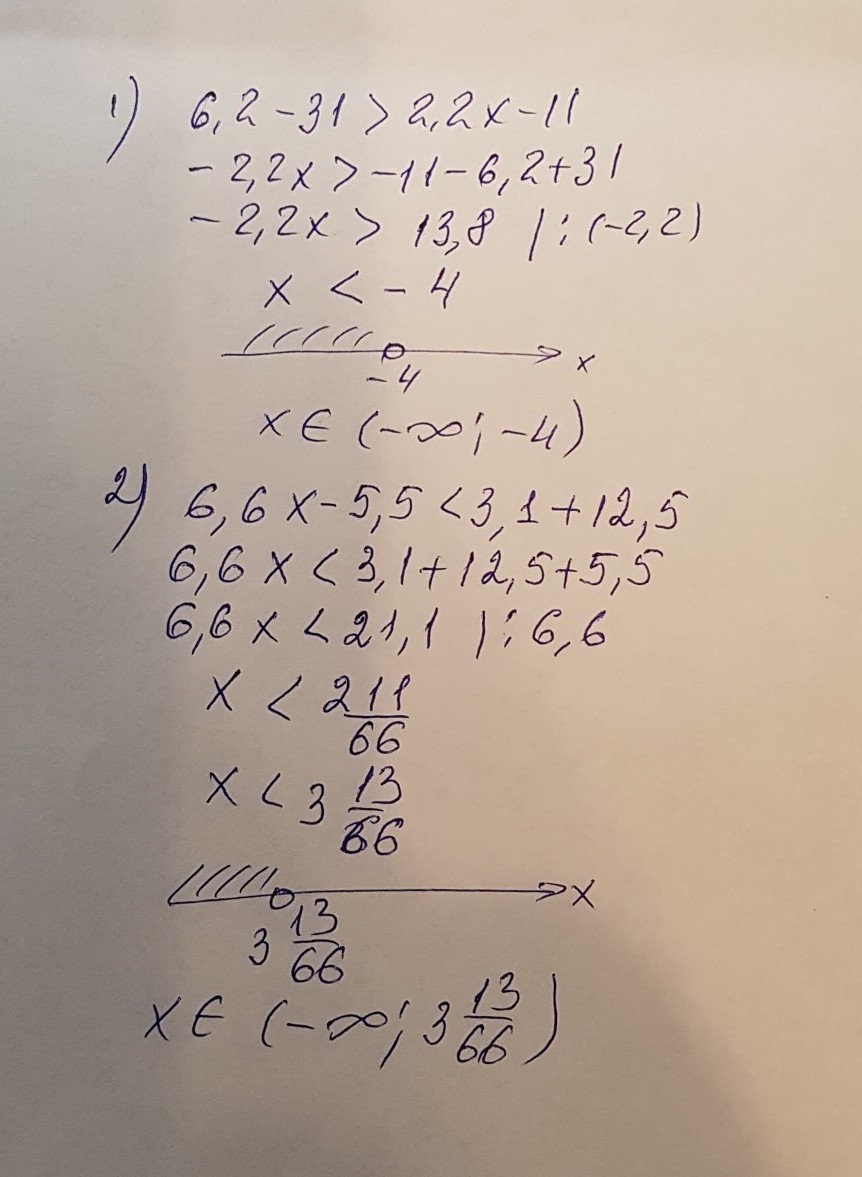 1) 6,2-31 > 2,2x-11
-2,2x > -11-6,2+31
-2,2x > 13,8 |:(-2,2)
x < -4
-4 x
x∈(-∞;-4)
2) 6,6x-5,5<3,1+12,5
6,6x<3,1+12,5+5,5
6,6x<21,1 |:6,6
x < 211/66
x < 3 13/66
3 13/66 x
x∈(-∞;3 13/66)